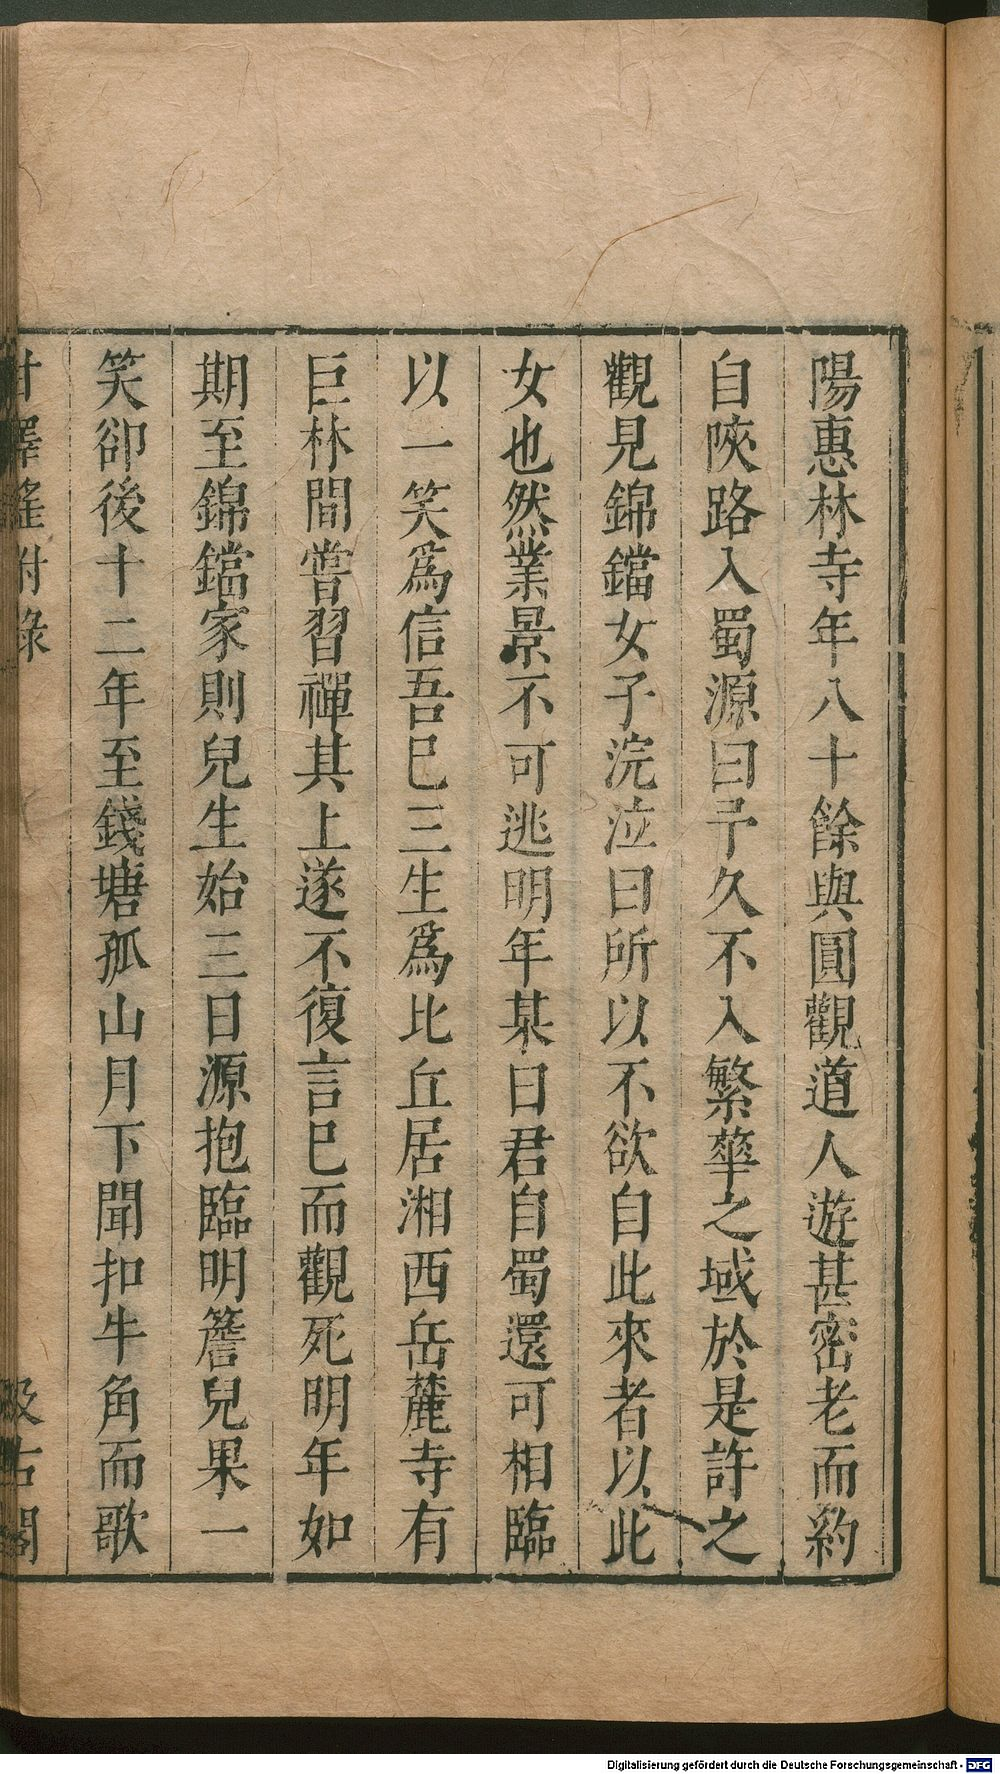 陽惠林寺年八十餘與圓觀道人遊甚密老而約
自陜路入蜀源曰予久不入繁華之域於是許之
觀見錦鐺女子浣泣曰所以不欲自此來者以此
女也然業景不可逃明年某日君自蜀還可相臨
以一笑爲信吾已三生爲比丘居湘西岳麓寺有
巨林間嘗習禪其上遂不復言已而觀死明年如
期至錦鐺家則兒生始三日源抱臨明簷兒果一
笑卻後十二年至錢塘孤山月下聞扣牛角而歌
甘澤謠附錄 汲古閣
Digitalisierung gefördert durch die Deutsche Forschungsgemeinschaft - DFG